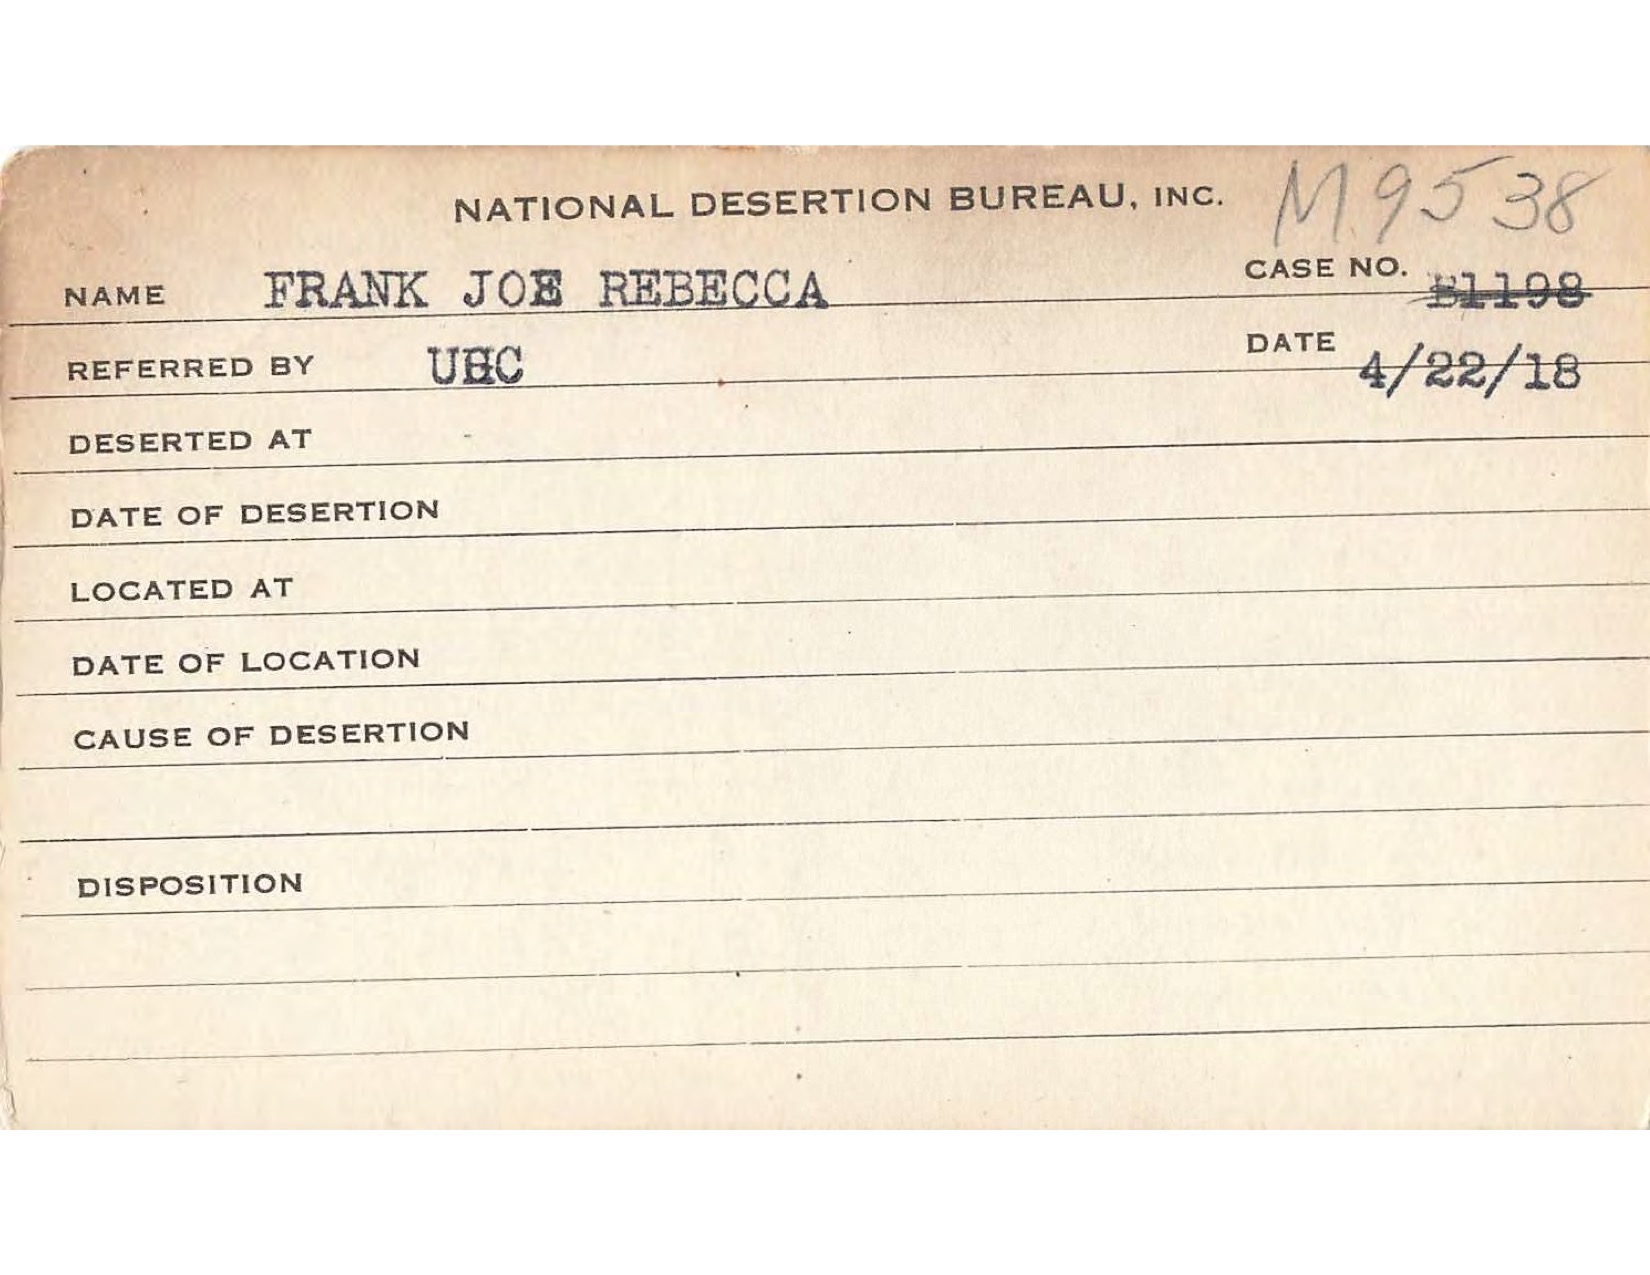 NATIONAL DESERTION BUREAU, INC. M 9538
NAME FRANK JOE REBECCA CASE NO. B1198
REFERRED BY UHC DATE 4/22/18
DESERTED AT
DATE OF DESERTION
LOCATED AT
DATE OF LOCATION
CAUSE OF DESERTION
DISPOSITION